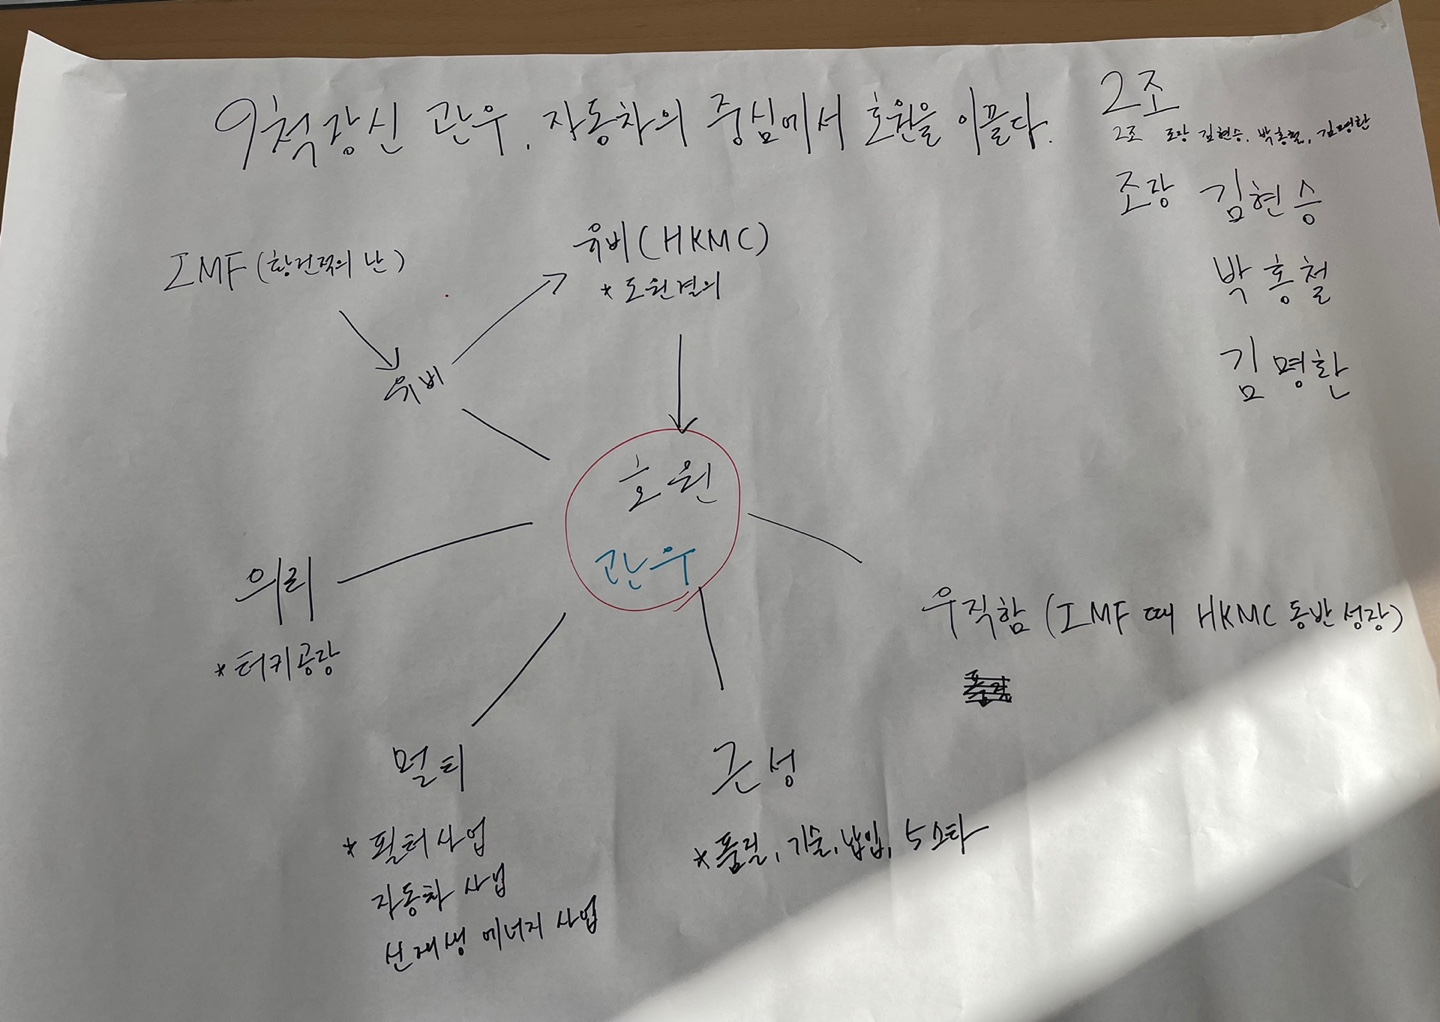 9척장신 관우, 자동차의 중심에서 호원을 이끌다.
2조
2조 조장 김현승, 박홍철, 김명환
조장 김현승
박홍철
김명환
IMF (황건적의 난)
유비 (HKMC)
* 도원결의
유비
호원
관우
의리
* 터키공장
우직함 (IMF 때 HKMC 동반성장)
멀티
* 필터사업
자동차 사업
신재생 에너지 사업
근성
* 품질, 기술, 납입, 5스타